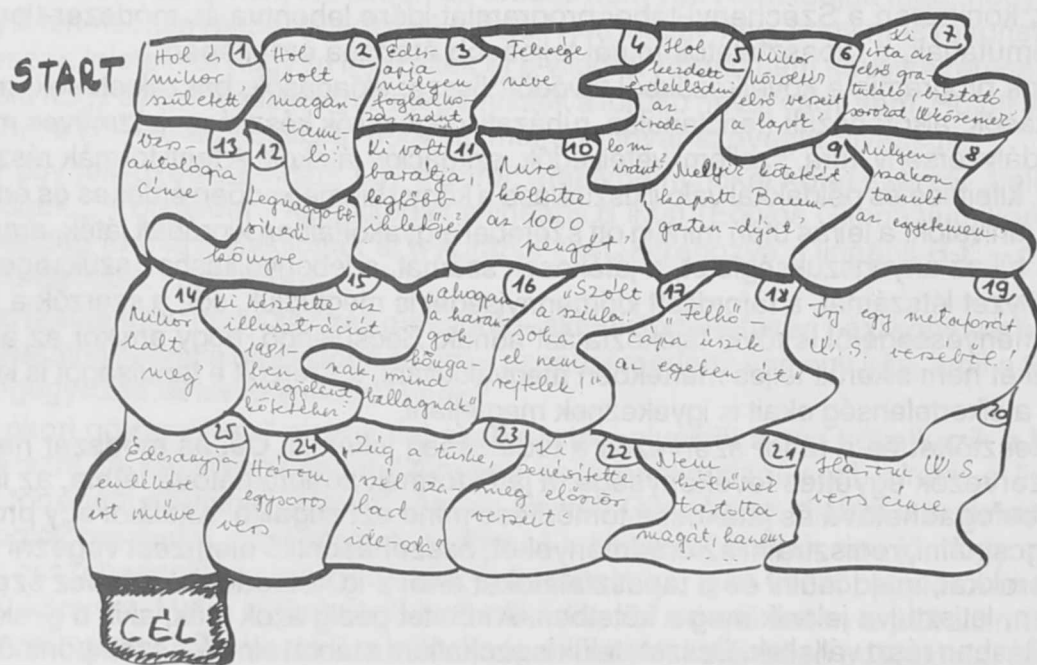 START
1
Hol és
mikor
született
2
Hol
volt
magán-
tanu-
ló
3
Édes-
apja
milyen
foglalko-
zás
4
Felesége
neve
5
Hol
kezdett
érdeklődni
az
iroda-
lom
iránt
6
Mikor
közölték
első verseit
a lapit
7
Ki
írta az
első gra-
tuláló, biztató
sorokat
8
Milyen
szakon
tanult
az
egyetemen
9
Melyik kötetét
kapott Baum-
garten díjat
10
Mire
költötte
az 1000
pengőt
11
Ki volt
barátja
legfőbb
12
Legnagyobb
sikerű
könyve
13
antológia
címe
14
Mikor
halt
meg
15
Ki készítette az
illusztrációt
1981-
ben
megjelent
kötetéhez
16
"alvapán
a haran-
gok
nak, mind
ballagnak"
17
"Széll
a szikla
el nem
rejtell;"
18
"Felhő
cápa úszik
az egeken át"
19
Írj egy metaforát
W.S. verseből!
20
Három W.S
vers címe
21
Nem
költőnek
tartotta
magát, hanem
22
Ki
zenésítette
meg először
verseit
23
"Zúg a tüske,
szél sza-
lad
ide-oda"
24
Három
egysoros
vers
25
Édesanyja
öt műve
CÉL